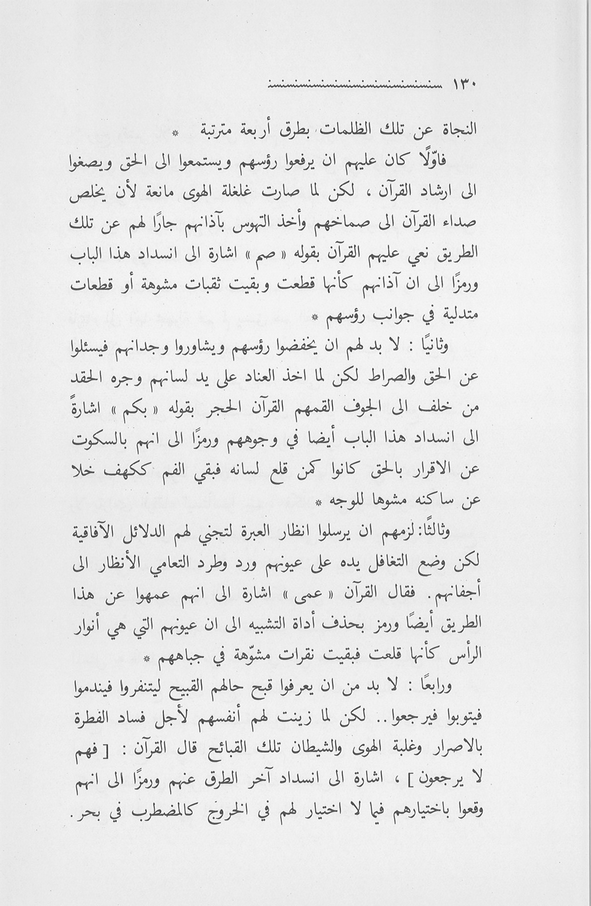 ١٣٠
النجاة عن تلك الظلمات بطرق أربعة مترتبة *
فاوّلًا كان عليهم ان يرفعوا رؤسهم ويستمعوا الى الحق ويصغوا
الى ارشاد القرآن ، لكن لما صارت غلغلة الهوى مانعة لأن يخلص
صداء القرآن الى صماخهم وأخذ التهوس بآذانهم جارًا لهم عن تلك
الطريق نعي عليهم القرآن بقوله « صم » اشارة الى انسداد هذا الباب
ورمزًا الى ان آذانهم كأنها قطعت وبقيت ثقبات مشوهة أو قطعات
متدلية في جوانب رؤسهم *
وثانيًا : لا بد لهم ان يخفضوا رؤسهم ويشاوروا وجدانهم فيسئلوا
عن الحق والصراط لكن لما اخذ العناد على يد لسانهم وجره الحقد
من خلف الى الجوف القمهم القرآن الحجر بقوله « بكم » اشارةً
الى انسداد هذا الباب أيضا في وجوههم ورمزًا الى انهم بالسكوت
عن الاقرار بالحق كانوا كمن قلع لسانه فبقي الفم ككهف خلا
عن ساكنه مشوها للوجه *
وثالثًا: لزمهم ان يرسلوا انظار العبرة لتجني لهم الدلائل الآفاقية
لكن وضع التغافل يده على عيونهم ورد وطرد التعامي الأنظار الى
أجفانهم. فقال القرآن « عمى » اشارة الى انهم عمهوا عن هذا
الطريق أيضًا ورمز بحذف أداة التشبيه الى ان عيونهم التي هي أنوار
الرأس كأنها قلعت فبقيت نقرات مشوّهة في جباههم *
ورابعًا : لا بد من ان يعرفوا قبح حالهم القبيح ليتنفروا فيندموا
فيتوبوا فيرجعوا.. لكن لما زينت لهم أنفسهم لأجل فساد الفطرة
بالاصرار وغلبة الهوى والشيطان تلك القبائح قال القرآن : [ فهم
لا يرجعون ] ، اشارة الى انسداد آخر الطرق عنهم ورمزًا الى انهم
وقعوا باختيارهم فيما لا اختيار لهم في الخروج كالمضطرب في بحر.